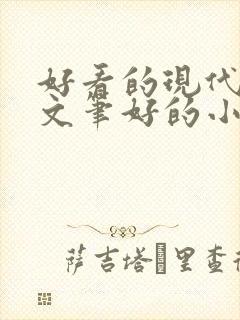 好看的现代
文笔好的小
萨吉塔里查